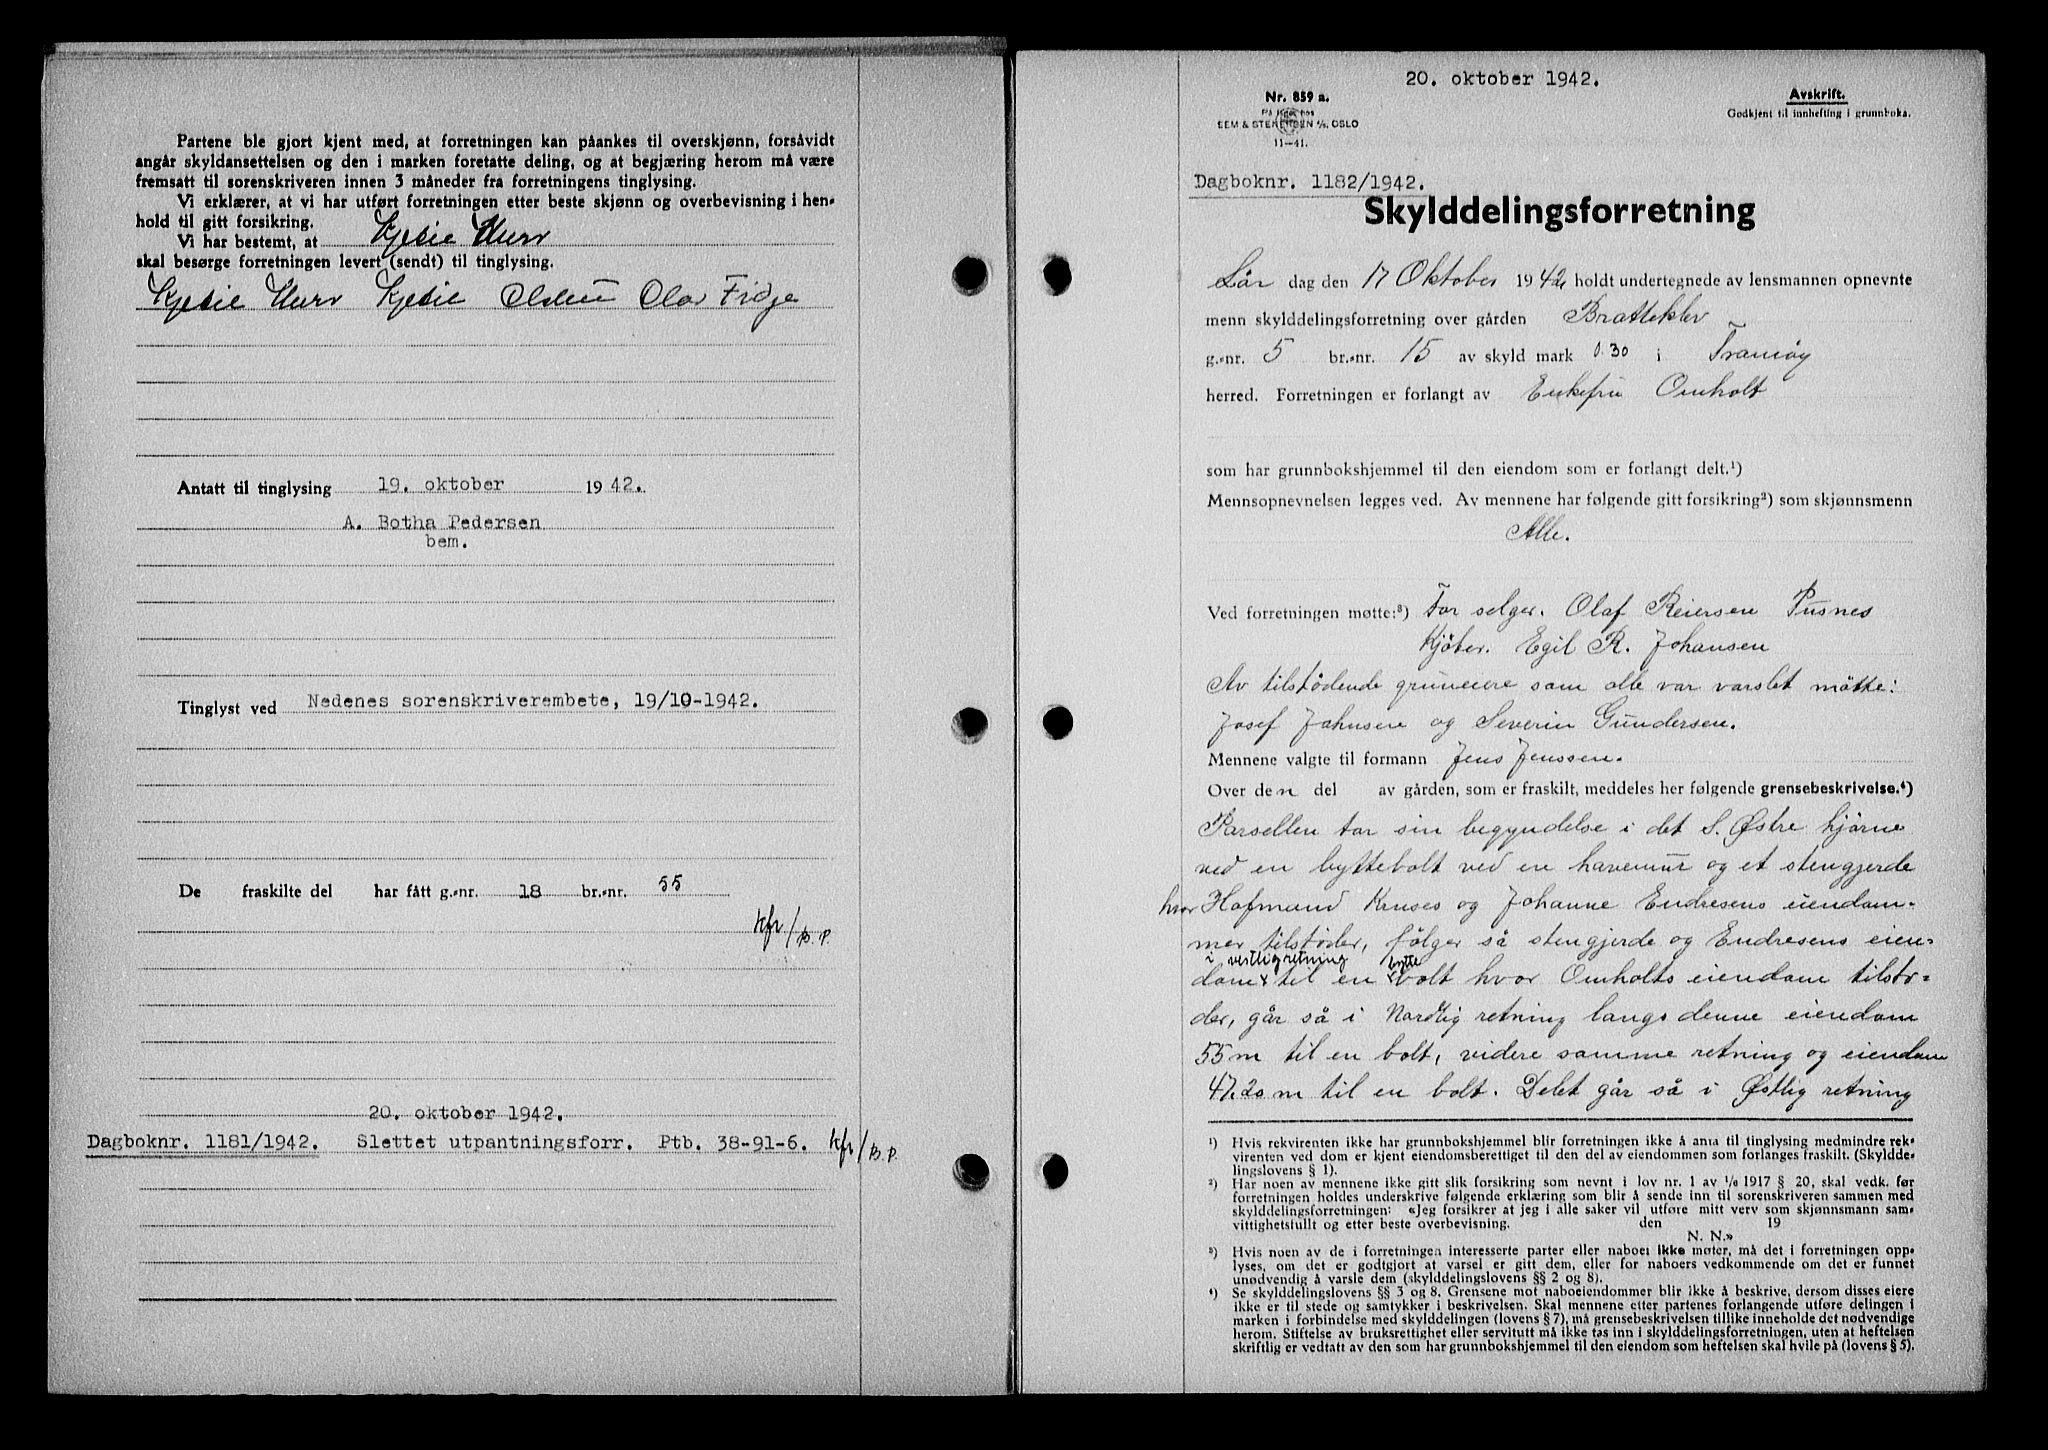 Partene ble gjort kjent med, at forretningen kan påankes til overskjønn, forsåvidt
angår skyldansettelsen og den i marken foretatte deling, og at begjæring herom må være
fremsatt til sorenskriveren innen 3 måneder fra forretningens tinglysing.
Vi erklærer, at vi har utført forretningen etter beste skjønn og overbevisning i hen-
hold til gitt forsikring.
Vi har bestemt, at
skal besørge forretningen levert (sendt) til tinglysing.
Olav Fidje
Antatt til tinglysing 19. oktober 1942.
A. Botha Pedersen
bem.
Tinglyst ved Nedenes sorenskriverembete, 19/10-1942.
De fraskilte del har fått g.-nr. 18 br.-nr. 55
kfr/B.P.
20. oktober 1942.
Dagboknr. 1181/1942. Slettet utpantningsforr. Ptb. 38-91-6. kfr/B.P.
20. oktober 1942.
Nr. 859 a.
SEM & STENERSEN A/S, OSLO
11-41.
Avskrift.
Godkjent til innhefting i grunnboka.
Dagboknr. 1182/1942.
Skylddelingsforretning
Lør dag den 17 Oktober 1942 holdt undertegnede av lensmannen opnevnte
menn skylddelingsforretning over gården Bratteklev
g.-nr. 5 br.-nr. 15 av skyld mark 0.30 i Tromøy
herred. Forretningen er forlangt av Enkefru Omholt
som har grunnbokshjemmel til den eiendom som er forlangt delt.¹)
Mennsopnevnelsen legges ved. Av mennene har følgende gitt forsikring²) som skjønnsmenn
Alle.
Ved forretningen møtte:³) For selger. Olaf Reiersen Pusnes
Kjöber. Egil R. Johansen
Av tilstødende gruneiere som alle var varslet mötte:
Josef Johnsen og Severin Gundersen.
Mennene valgte til formann Jens Jenssen.
Over den del av gården, som er fraskilt, meddeles her følgende grensebeskrivelse.⁴)
Parsellen tar sin begyndelse i det S. Østre hjörne
ved en byttebolt ved en havemur og et stengjerde
hvor Hofmand Kruses og Johanne Endresens eiendom-
mer tilstøder, fölger så stengjerde og Endresens eien-
i vestligretning bytte
dom x til en x bolt hvor Omholts eiendom tilstö-
der, går så i Nordlig retning langs denne eiendom
55 m til en bolt, videre samme retning og eiendom
47,20 m til en bolt. Delet går så i Østlig retning
¹) Hvis rekvirenten ikke har grunnbokshjemmel blir forretningen ikke å anta til tinglysing medmindre rek-
virenten ved dom er kjent eiendomsberettiget til den del av eiendommen som forlanges fraskilt. (Skyldde-
lingslovens § 1).
²) Har noen av mennene ikke gitt slik forsikring som nevnt i lov nr. 1 av 1/6 1917 § 20, skal vedk. før
forretningen holdes underskrive følgende erklæring som blir å sende inn til sorenskriveren sammen med
skylddelingsforretningen: «Jeg forsikrer at jeg i alle saker vil utføre mitt verv som skjønnsmann sam-
vittighetsfullt og etter beste overbevisning. den 19
N. N.»
³) Hvis noen av de i forretningen interesserte parter eller naboer ikke møter, må det i forretningen opp-
lyses, om det er godtgjort at varsel er gitt dem, eller for naboers vedkommende om det er funnet
unødvendig å varsle dem (skylddelingslovens §§ 2 og 8).
⁴) Se skylddelingslovens §§ 3 og 8. Grensene mot naboeiendommer blir ikke å beskrive, dersom disses eiere
ikke er til stede og samtykker i beskrivelsen. Skal mennene etter partenes forlangende utføre delingen i
marken i forbindelse med skylddelingen (lovens § 7), må grensebeskrivelsen tillike inneholde det nødvendige
herom. Stiftelse av bruksrettighet eller servitutt må ikke tas inn i skylddelingsforretningen, uten at heftelsen
skriftlig er vedtatt av den som har grunnbokshjemmel til den eiendom som heftelsen skal hvile på (lovens § 5).